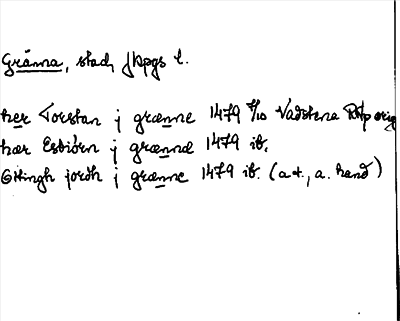 Gränna, stad, Jkpgs l.
her Torstan j grænne 1479 8/10 Vadstena RAp orig
hær Esbiörn j grænnæ 1479 ib.
jordh j grænne 1479 ib. (a+., a. hand)